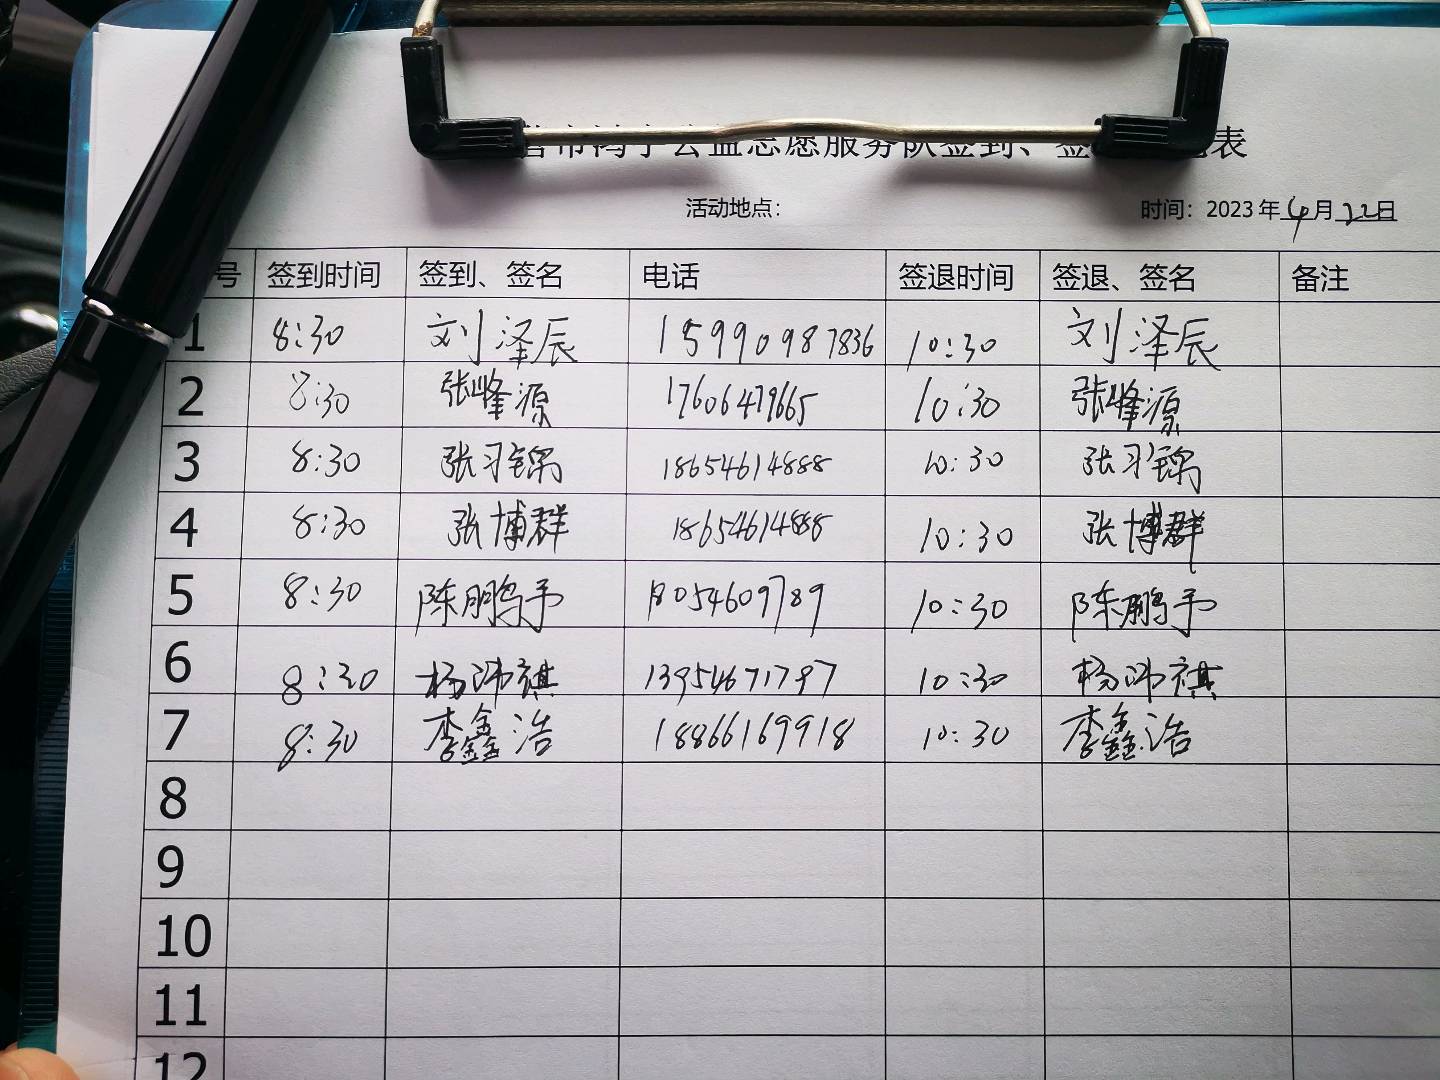 公益志愿服务队签到、签 表
活动地点：
时间：2023年4月22日
号 签到时间 签到、签名 电话 签退时间 签退、签名 备注
1 8:30 刘泽辰 15990987836 10:30 刘泽辰
2 8:30 张峰源 17606479665 10:30 张峰源
3 8:30 张习锦 18654614888 10:30 张习锦
4 8:30 张博群 18654614888 10:30 张博群
5 8:30 陈鹏予 18054609789 10:30 陈鹏予
6 8:30 杨沛祺 13954671797 10:30 杨沛祺
7 8:30 李鑫浩 18866169918 10:30 李鑫浩
8
9
10
11
12